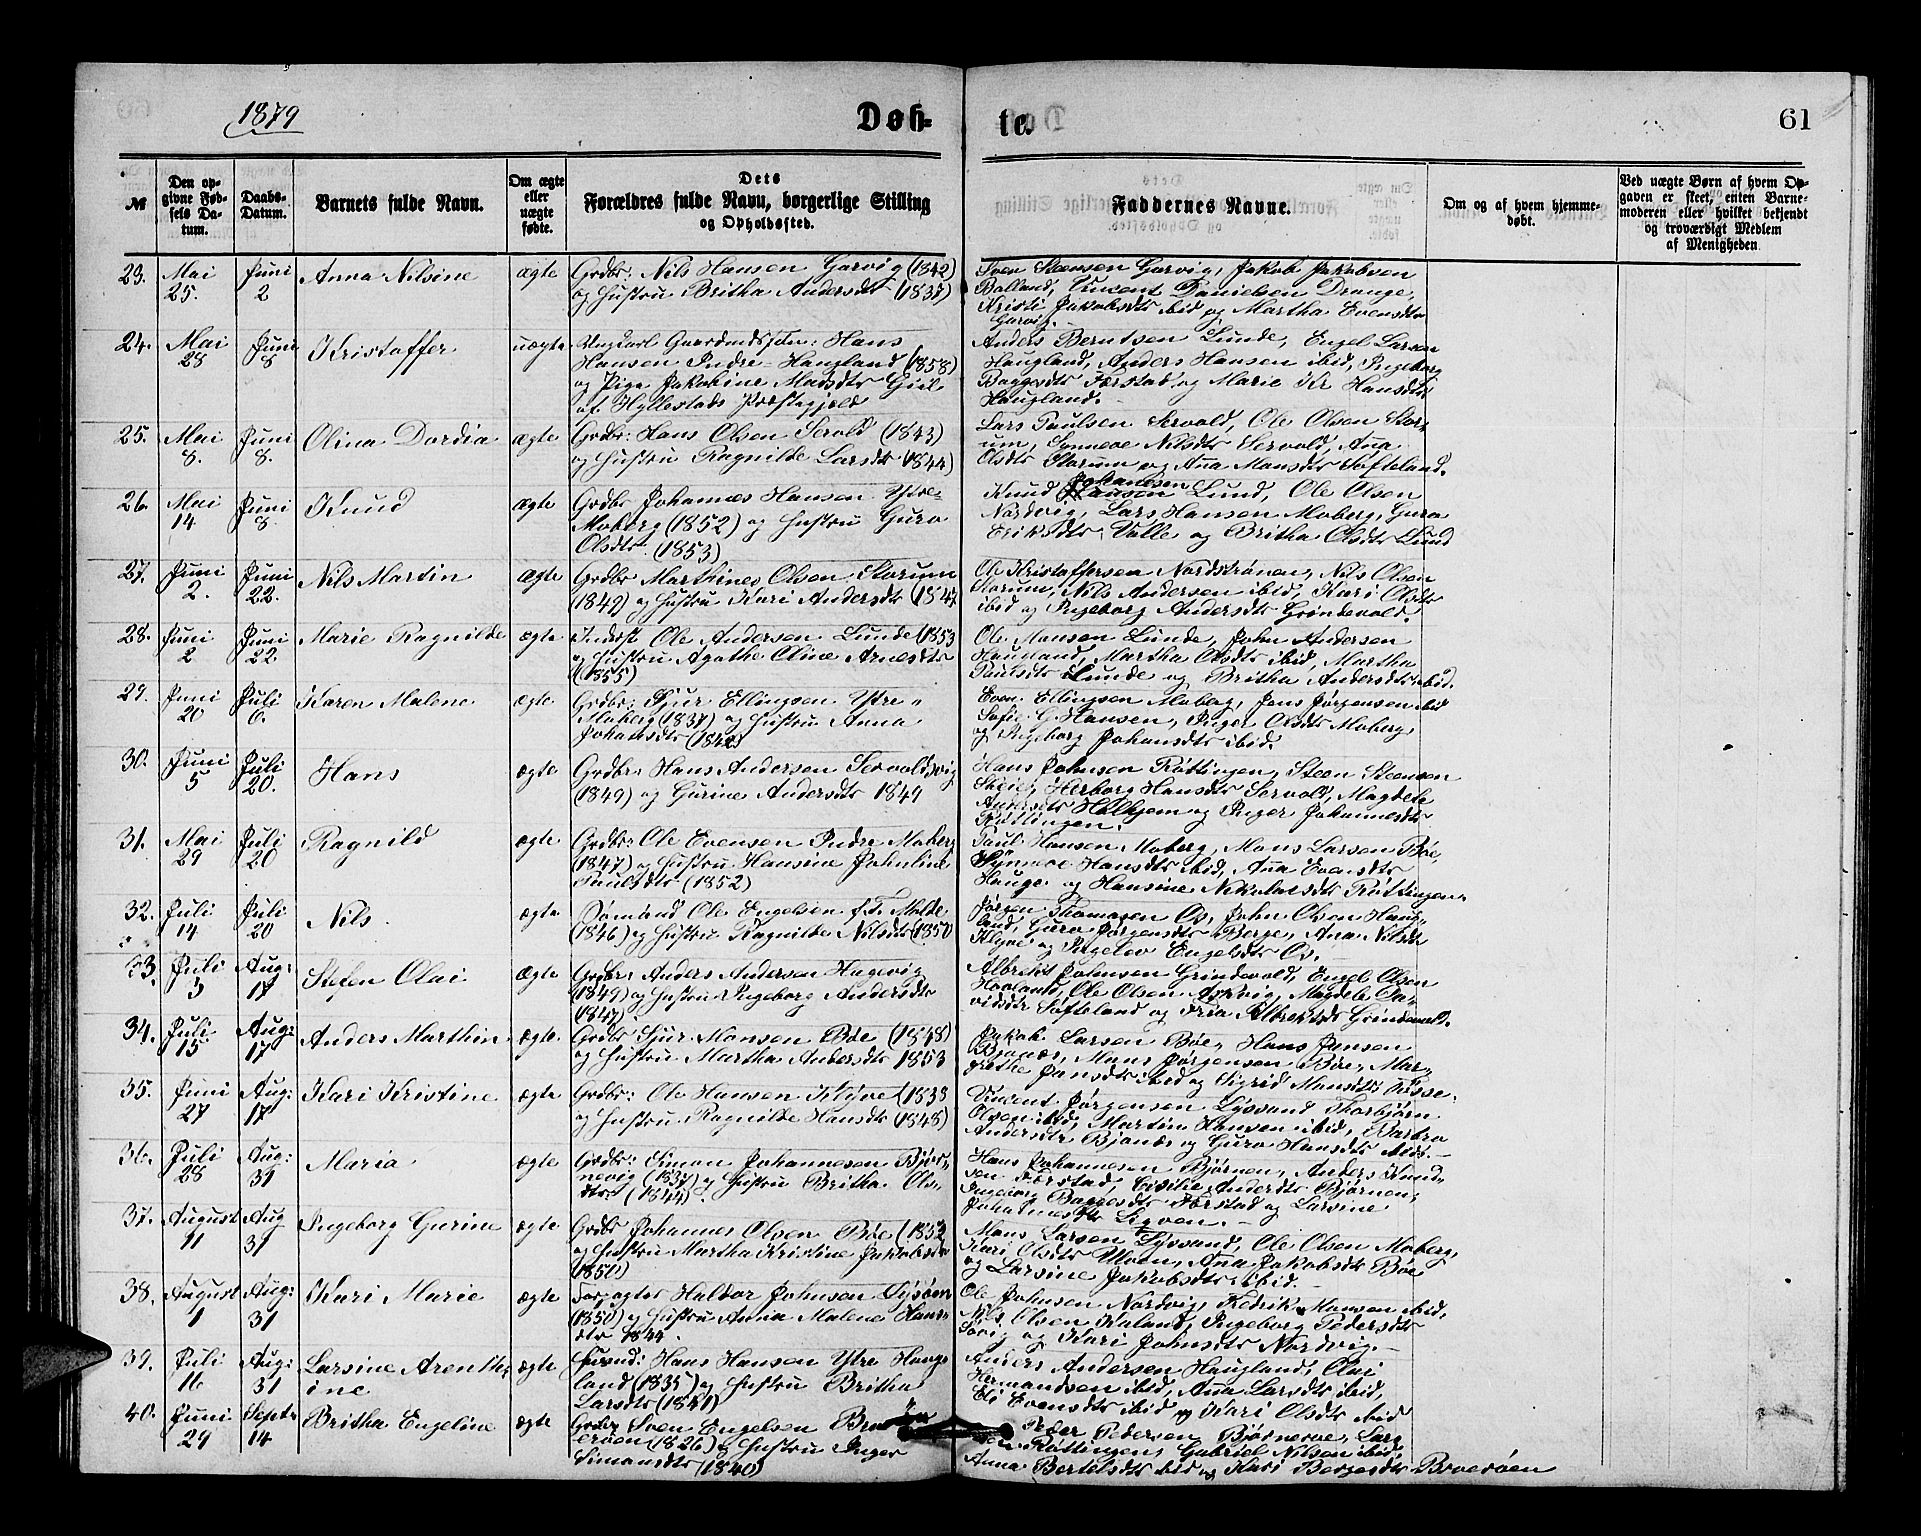 1879
Døb-
te.
61
№
Den op-
givne Fød-
sels Da-
tum.
Daabs-
Datum.
Barnets fulde Navn.
Om ægte
eller
uægte
fødte.
Dets
Forældres fulde Navn, borgerlige Stilling
og Opholdssted.
Faddernes Navne.
Om og af hvem hjemme-
døbt.
Ved uægte Børn af hvem Op-
gaven er skeet, enten Barne-
moderen eller hvilket bekjendt
og troværdigt Medlem
af Menigheden.
23. Mai 25. Juni 2 Anna Nilsine ægte
Grdbr: Nils Hansen Garvig (1842)
og Hustru Britha Andersdtr (1837)
Sven Steensen Garvig, Jakob Jakobsen
Balland, Vincent Danielsen Drange,
Kristi Jakobsdtr ibid og Martha Evensdtr
Garvig.
24. Mai 28 Juni 8 Kristoffer uægte
Ungkarl Gaardmdssøn: Hans
Hansen Indre-Haugland (1858)
og Pige Jakobine Madsdtr
af Hyllestads Præstegjeld
Anders Berntsen Lunde, Engel Larsen
Haugland, Anders Hansen ibid, Ingeborg
Baggesdtr Færstad og Marie Kr Hansdtr
Haugland.
25. Mai 8. Juni 8. Olina Dordia ægte
Grdbr: Hans Olsen Servold (1843)
og Hustru Ragnilde Larsdtr (1844)
Lars Paulsen Servold, Ole Olsen Stor-
um, Sønneve Nilsdtr Servold, Ana
Olsdtr Storum og Ana Monsdtr Softeland.
26. Mai 14 Juni 8. Knud ægte
Grdbr Johannes Hansen Ytre-
Moberg (1852) og Hustru Guro
Olsdtr. (1853)
Johanesen
Knud Hansen Lund, Ole Olsen
Nordvig, Lars Hansen Moberg, Guro
Eriksdtr Valle og Britha Olsdtr Lund
27. Juni 2. Juni 22. Nils Martin ægte
Grdbr Marthines Olsen Storum
(1849) og Hustru Kari Andersdtr (1847
Ole Kristoffersen Nordstrønen, Nils Olsen
Storum, Nils Andersen ibid, Kari Olsdtr
ibid og Ingeborg Andersdtr Grindevold.
28. Juni 2 Juni 22. Marie Ragnilde ægte
Inderst Ole Andersen Lunde (1853
og Hustru Agathe Oline Arnesdtr
(1855)
Ole Monsen Lunde, John Andersen
Haugland, Martha Olsdtr ibid, Martha
Paulsdtr Lunde og Britha Andersdtr ibid.
29. Juni 20 Juli 6. Karen Malene ægte
Grdbr: Sjur Ellingsen Ytre
Moberg (1837) og Hustru Anna
Johansdtr (1842)
Even Ellingsen Moberg, Jens Jørgensen ibid
Sofie G. Hansen, Inger Olsdtr Moberg,
og Ingeborg Johansdtr ibid.
30. Juni 5 Juli 20. Hans ægte
Grdbr: Hans Andersen Servoldsvig
(1849) og Gurine Andersdtr 1849
Hans Johnsen Røttingen, Steen Steensen
Skeie, Herborg Hansdtr Servold, Magdele
Andersdtr Holhjem og Inger Johannesdtr
Røttingen.
31. Mai 29 Juli 20 Ragnild ægte
Grdbr: Ole Evensen Indre Moberg
(1847) og Hustru Hansine Johnline
Paulsdtr (1852)
Paul Hansen Moberg, Mons Larsen Bøe,
Synneve Hansdtr ibid, Ana Evensdtr
Hauge og Hansine Nikolaisdtr Røttingen.
32. Juli 14 Juli 20 Nils. ægte
Sømand Ole Engelsen f.T. Molde
(1846) og Hustru Ragnilde Nilsdtr (1850
Jørgen Thomasen Os, John Olsen Haug-
land, Guro Jørgensdtr Berge, Ana Nilsdtr
Klyve og Ingelev Engelsdtr Os.
33. Juli 3 Aug: 17 Stefen Olai ægte
Grdbr: Anders Andersen Hagevig
(1849) og Hustru Ingeborg Andersdtr
(1847)
Albrekt Johnsen Grindevold, Engel Olsen
Hovland, Ole Olsen Askvig, Magdele Da-
vidsdtr Softeland og Albrektsdtr Grindevold.
34. Juli 15 Aug: 17 Anders Marthin ægte
Grdbr Sjur Monsen Bøe (1848)
og Hustru Martha Andersdtr 1853
Jakob Larsen Bøe, Hans Jansen
Bjånæs, Mons Jørgensen Bøe, Mar-
grethe Jonsdtr ibid og Sigrid Monsdtr
35. Juni 27 Aug: 17 Kari Kristine ægte
Grdbr: Ole Hansen Klyve (1838
og Hustru Ragnilde Hansdtr (1848)
Vincent Jørgensen Lysund, Thorbjørn
Olsen ibid, Martin Hansen ibid, Barbro
Andersdtr Bjånæs og Guro Hansdtr ibid.
36. Juli 28 Aug: 31 Maria ægte
Grdbr: Simon Johannesen Bjør-
nevig (1837) og Hustru Britha Ols-
dtr (1844)
Hans Johannesen Bjørnen, Anders Knud-
sen Færstad, Cisilie Andersdtr Bjørnen,
Ingeborg Baggesdtr Færstad og Larsine
Johannesdtr
37. August 11 Aug 31 Ingeborg Gurine ægte
Grdbr Johannes Olsen Bøe (1852
og Hustru Martha Kristine Jakobsdtr
(1850)
Mons Larsen Lyssand, Ole Olsen Moberg,
Kari Olsdtr Ulven, Ana Jakobsdtr Bøe
og Larsine Jakobsdtr ibid.
38. August 1 Aug: 31 Kari Marie ægte
Forpagter Haldor Johnsen Lysøen
(1850) og Hustru Anna Malene Hans-
dtr 1844.
Ole Johnsen Nordvig, Fedrik Monsen ibid,
Nils Olsen Haland, Ingeborg Pedersdtr
Søvig og Kari Johnsdtr Nordvig.
39. Juli 16 Aug: 31 Larsine Arenth-
ine ægte
Husmd: Hans Hansen Ytre Haug-
land (1835) og Hustru Britha
Larsdtr (1841)
Anders Andersen Haugland, Olai
Hermandsen ibid, Ana Larsdtr ibid,
Eli Evensdtr ibid og Kari Olsdtr ibid
40. Juni 29 Septr 14 Britha Engeline ægte
Grdbr Sven Engelsen Bru-
erøen (1826) og Hustru Inger
Simonsdtr (1840)
Peder Pedersen Bjørneve, Lars
Røttingen, Gabriel Nilsen ibid,
Anna Bertelsdtr ibid og Kari Børgesdtr Bruerøen